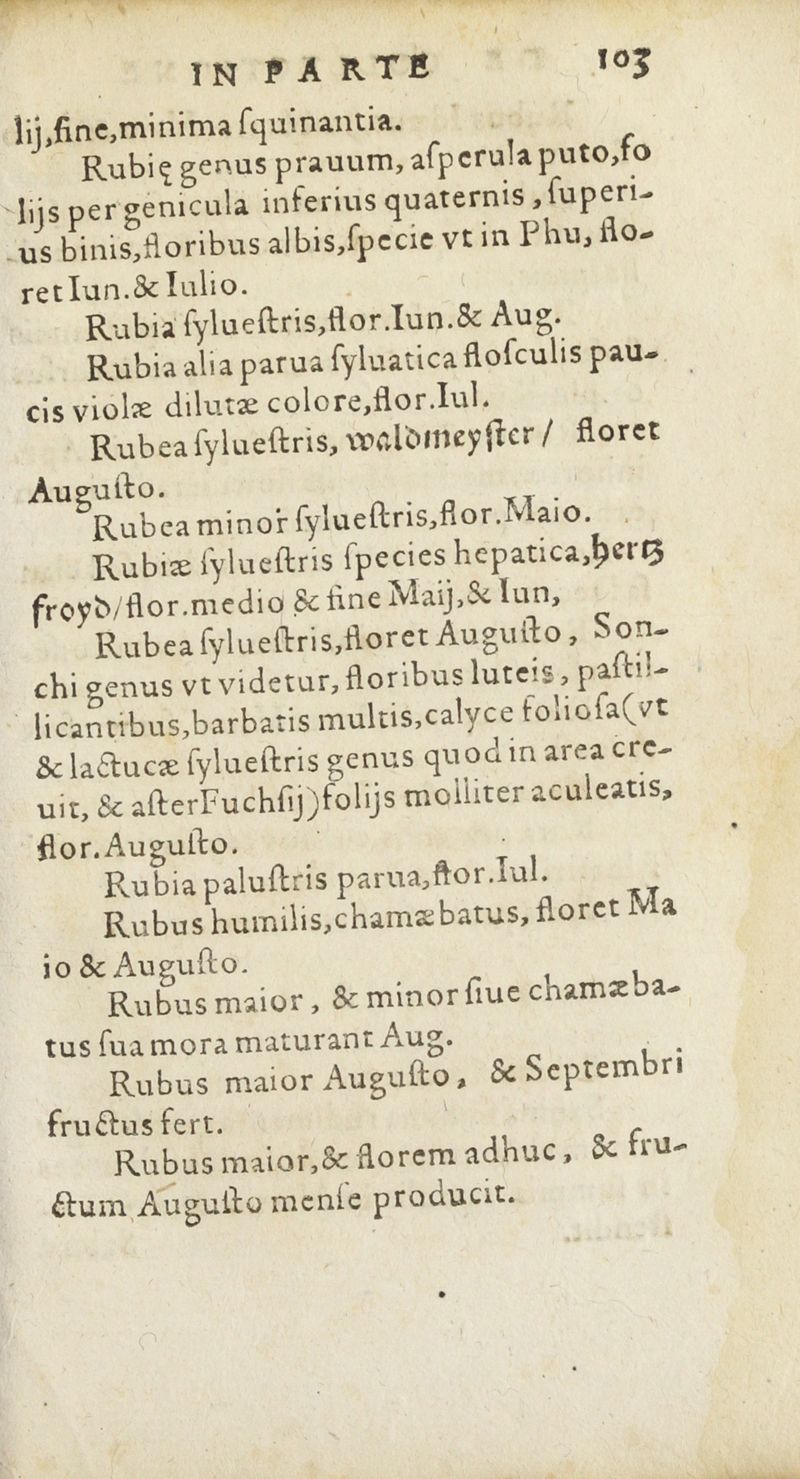 IN PARTE 103
lij,fine,minima ſquinantia.
Rubię genus prauum, aſperula puto,fo
lijs per genicula inferius quaternis, ſuperi-
us binis,floribus albis,ſpecie vt in Phu, flo-
ret Iun.& Iulio.
Rubia ſylueſtris,flor.Iun.& Aug.
Rubia alia parua ſyluatica floſculis pau-
cis violæ dilutæ colore,flor.Iul.
Rubea ſylueſtris, waldmeyſter / floret
Auguſto.
Rubea minor ſylueſtris,flor.Maio.
Rubiæ ſylueſtris ſpecies hepatica,hertz
froyd/flor.medio & fine Maij,& Iun,
Rubea ſylueſtris,floret Auguſto, Son-
chi genus vt videtur, floribus luteis, paſtil-
licantibus,barbatis multis,calyce folioſa(vt
& lactucæ ſylueſtris genus quod in area cre-
uit, & aſterFuchſij)folijs molliter aculeatis,
flor.Auguſto.
Rubia paluſtris parua,flor.Iul.
Rubus humilis,chamæbatus, floret Ma
io & Auguſto.
Rubus maior, & minor ſiue chamæba-
tus ſua mora maturant Aug.
Rubus maior Auguſto, & Septembri
fructus fert.
Rubus maior,& florem adhuc, & fru-
ctum Auguſto menſe producit.